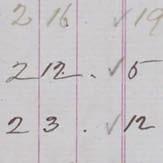 2 16 ✓ 19
2 12. ✓ 5
2 3. ✓ 12